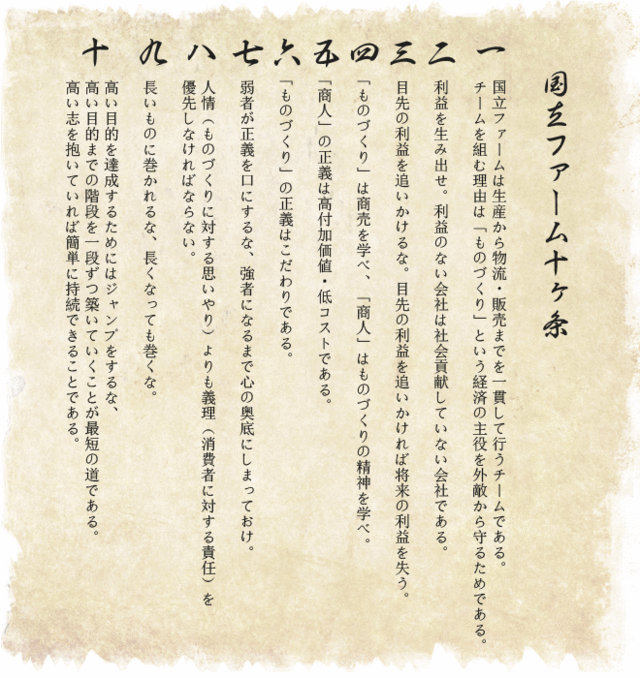 国立ファーム十ヶ条
一
国立ファームは生産から物流・販売までを一貫して行うチームである。
チームを組む理由は「ものづくり」という経済の主役を外敵から守るためである。
二
利益を生み出せ。利益のない会社は社会貢献していない会社である。
三
目先の利益を追いかけるな。目先の利益を追いかければ将来の利益を失う。
四
「ものづくり」は商売を学べ、「商人」はものづくりの精神を学べ。
五
「商人」の正義は高付加価値・低コストである。
六
「ものづくり」の正義はこだわりである。
七
弱者が正義を口にするな、強者になるまで心の奥底にしまっておけ。
八
人情（ものづくりに対する思いやり）よりも義理（消費者に対する責任）を
優先しなければならない。
九
長いものに巻かれるな、長くなっても巻くな。
十
高い目的を達成するためにはジャンプをするな、
高い目的までの階段を一段ずつ築いていくことが最短の道である。
高い志を抱いていれば簡単に持続できることである。